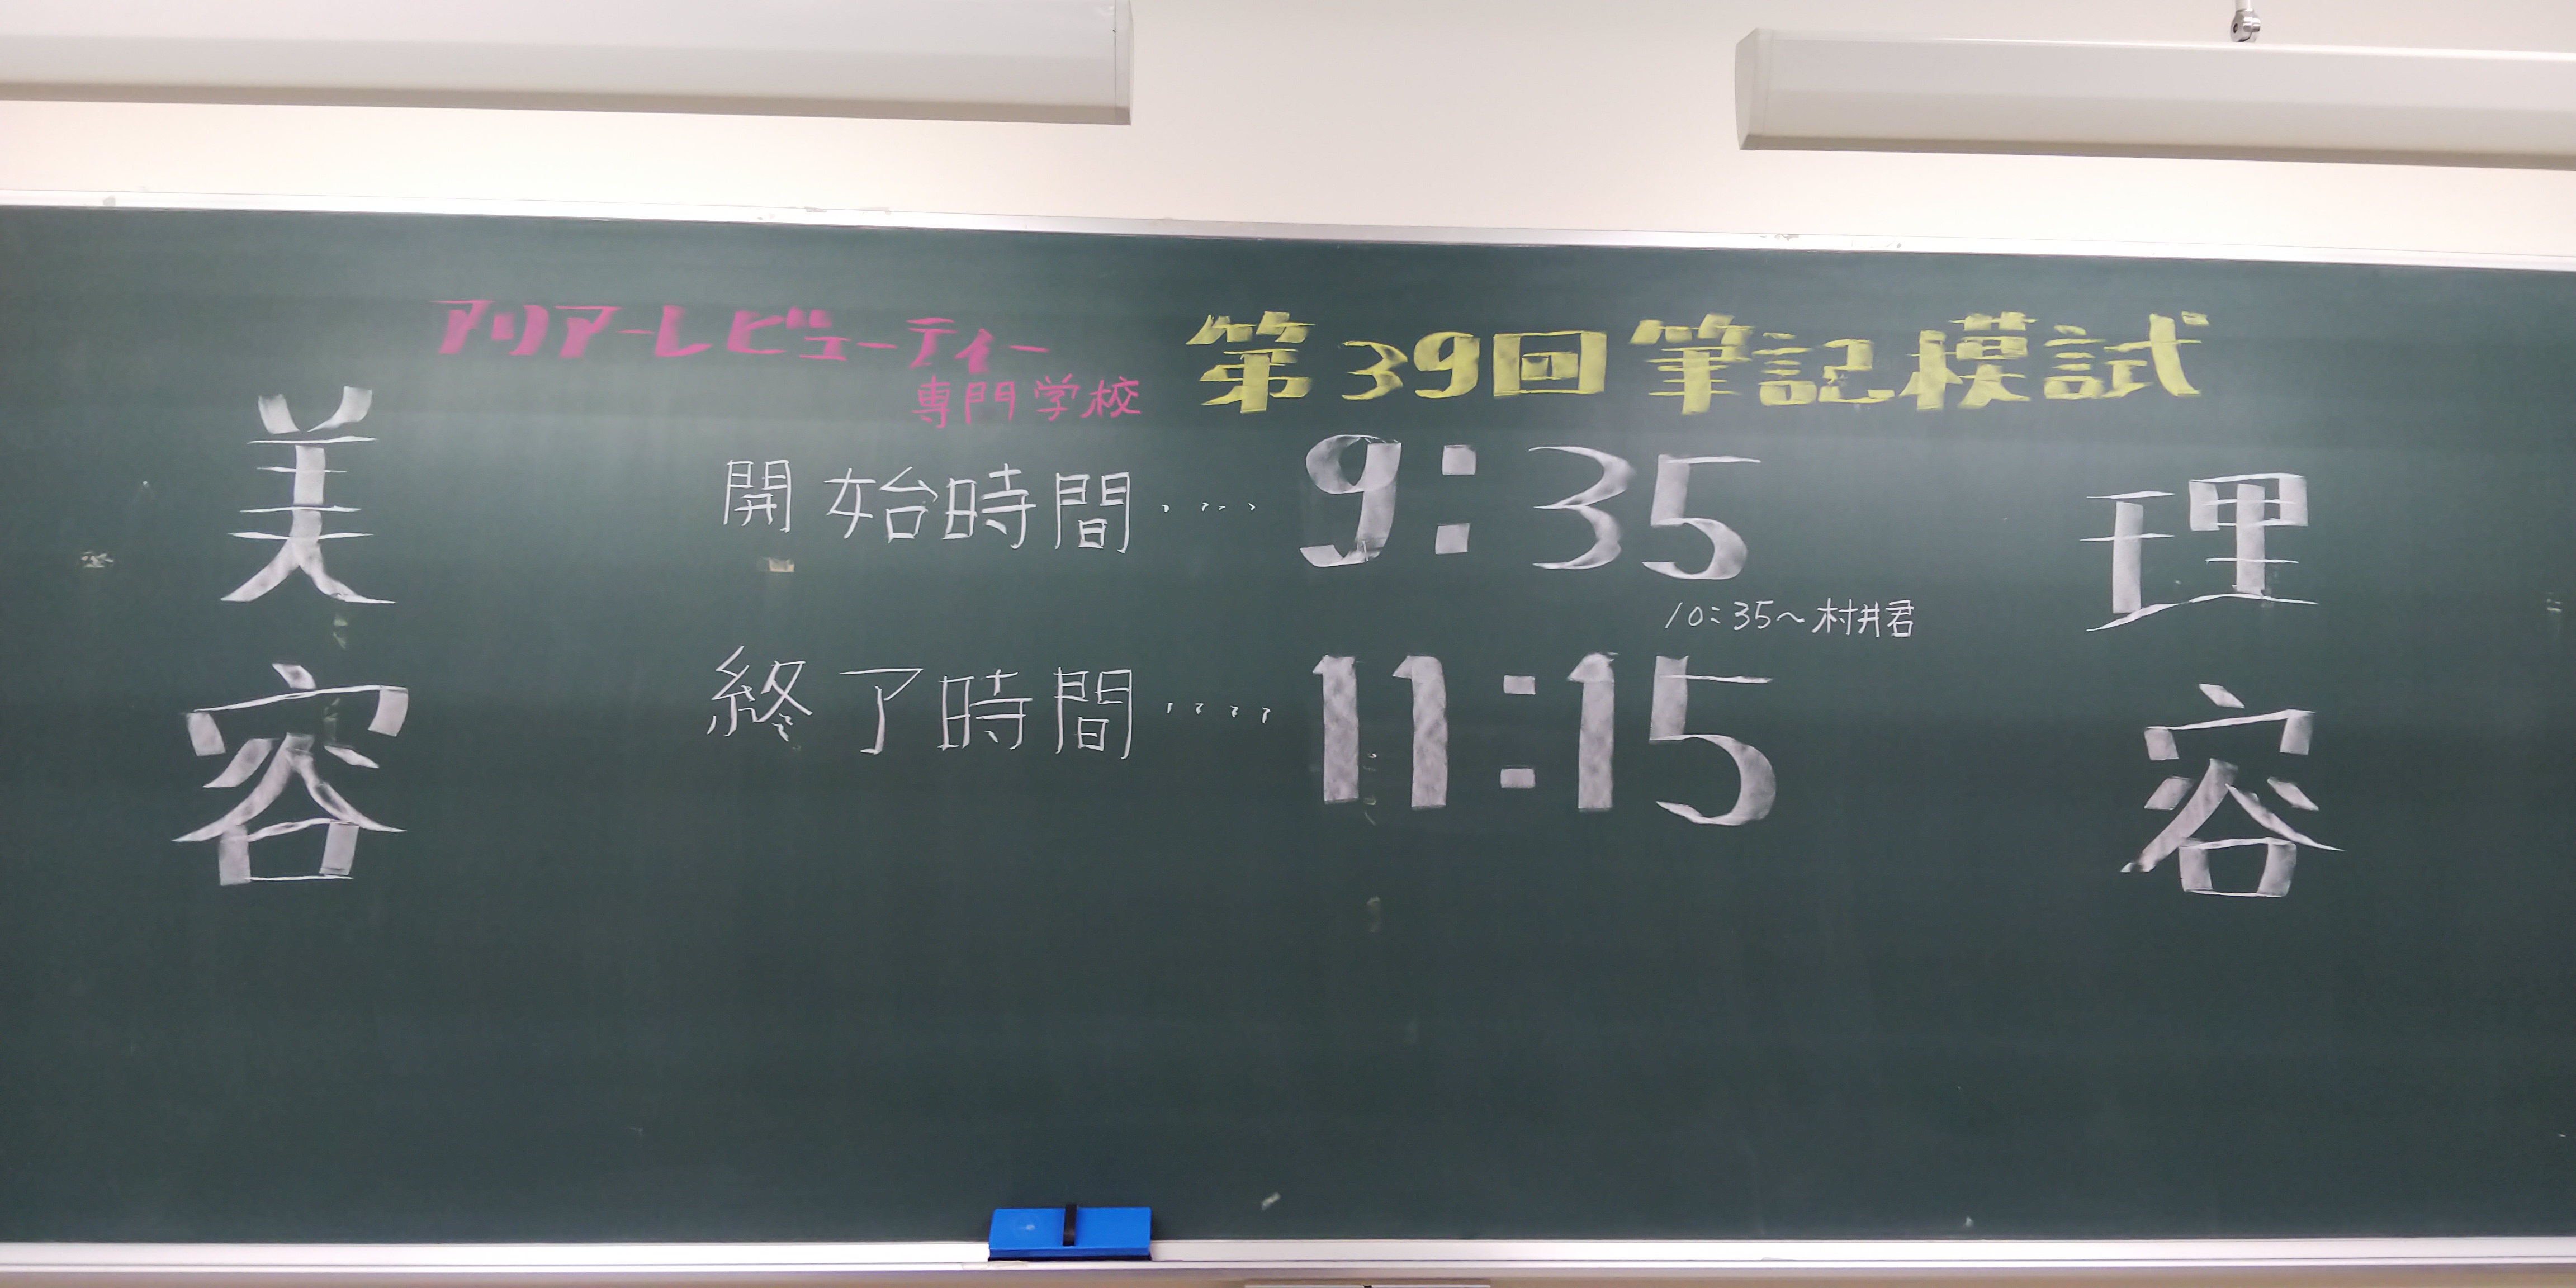 アリアーレビューティー
専門学校
第39回筆記模試
美容
開始時間‥‥9:35
10:35〜村井君
終了時間‥‥11:15
理容